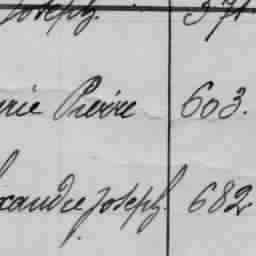 Joseph. 571
rie Pierre 603.
xandre Joseph. 682